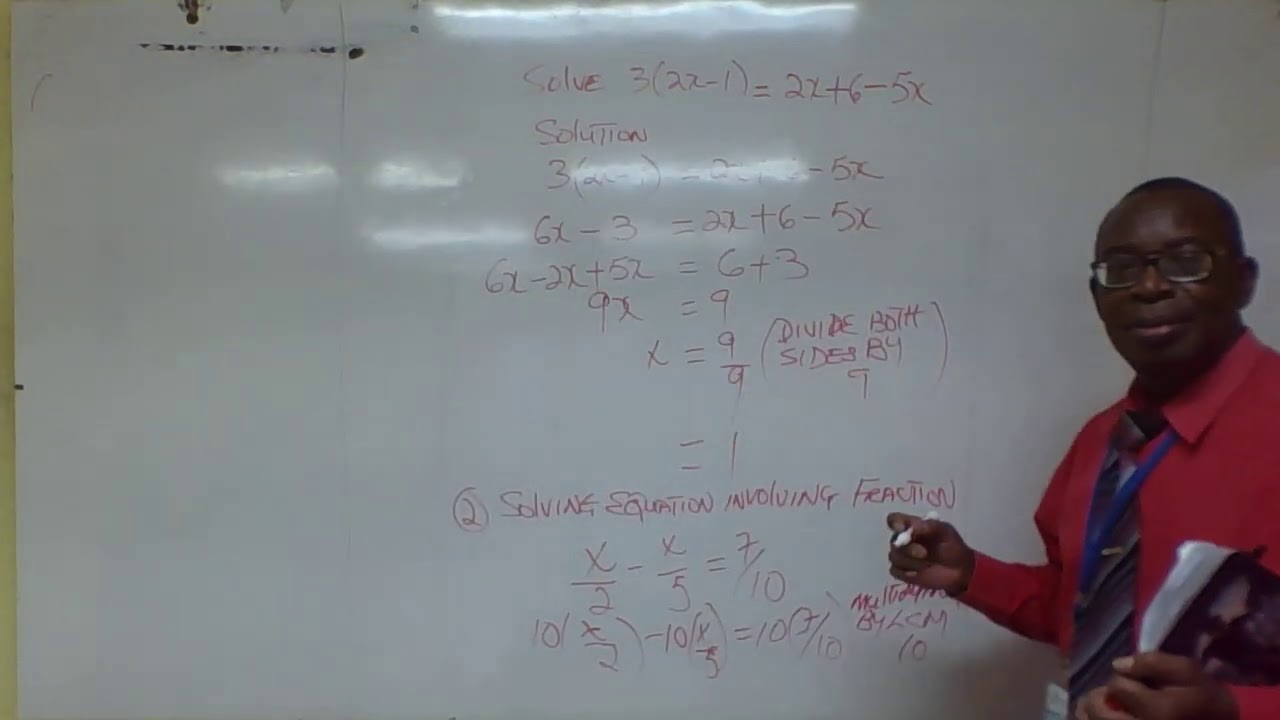 Solve 3(2x-1) = 2x+6-5x
Solution
3(2x-1) = 2x - 5x
6x - 3 = 2x+6-5x
6x-2x+5x = 6+3
9x = 9
x = 9/9 (DIVIDE BOTH
SIDES BY
9)
= 1
② SOLVING EQUATION INVOLVING FRACTION
x/2 - x/5 = 7/10
10(x/2) - 10(x/5) = 10(7/10
BY LCM
10